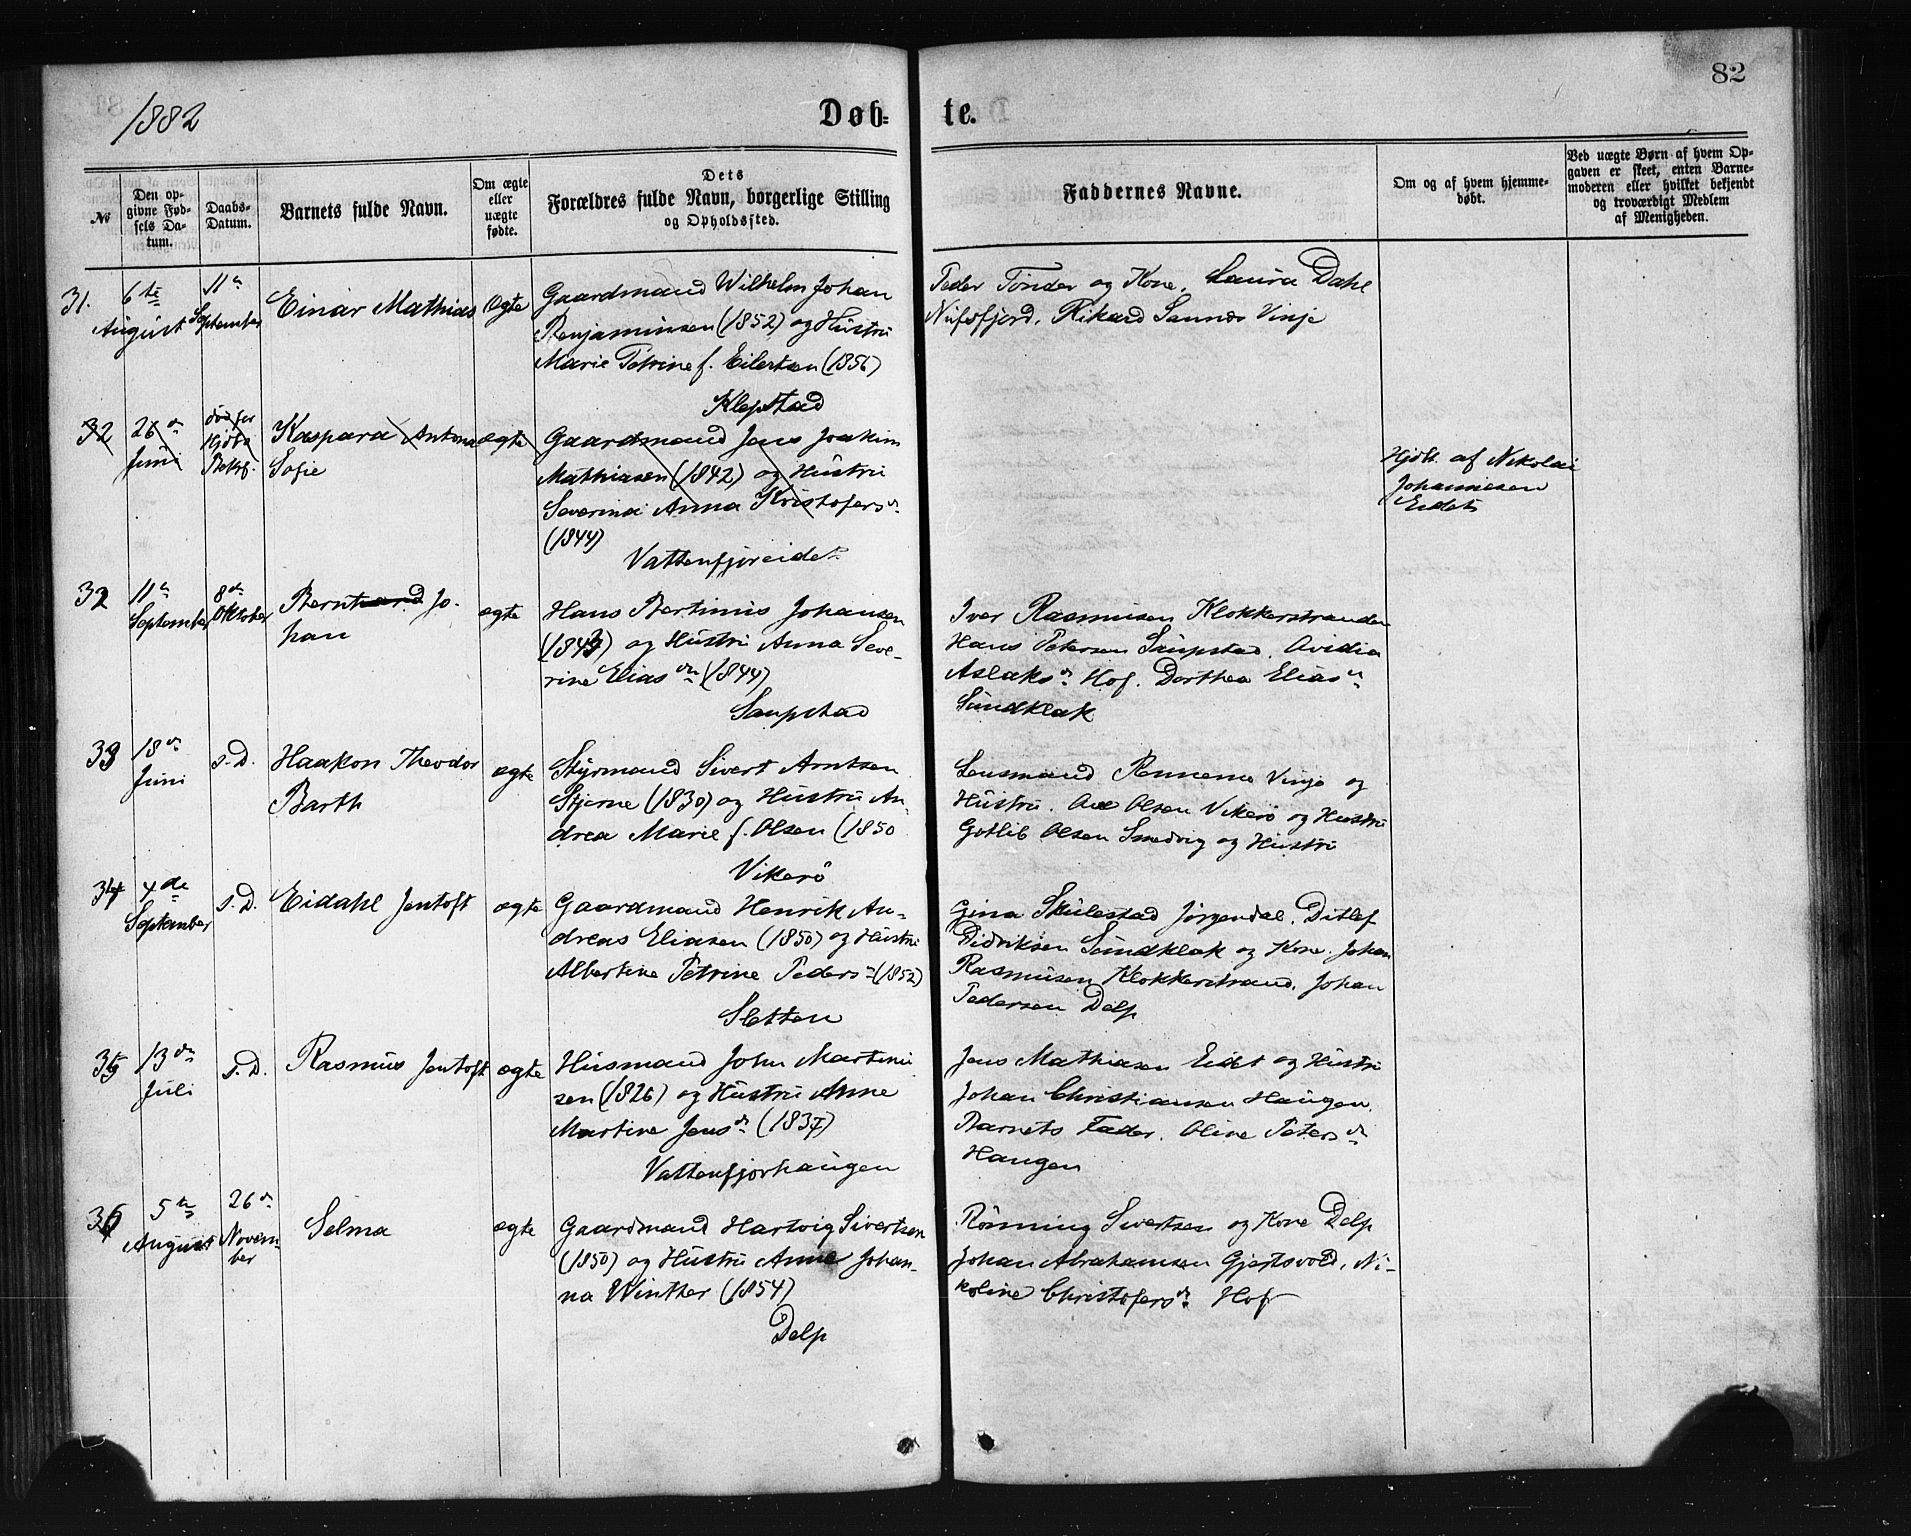 82
1882
Døb-
te.
№
Den op-
givne Fød-
sels Da-
tum.
Daabs-
Datum.
Barnets fulde Navn.
Om ægte
eller
uægte
fødte.
Dets
Forældres fulde Navn, borgerlige Stilling
og Opholdssted.
Faddernes Navne.
Om og af hvem hjemme-
døbt.
Ved uægte Børn af hvem Op-
gaven er skeet, enten Barne-
moderen eller hvilket bekjendt
og troværdigt Medlem
af Menigheden.
31.
6te
August
11te
September
Einar Mathias
Ægte
Gaardmand Wilhelm Johan
Benjaminsen (1852) og Hustru
Marie Petrine f. Eilertsen (1856)
Klepstad
Peder Tönder og Kone. Laura Dahl
Nufsfjord. Rikard Sannes Vinje
32
26de
Juni
Kaspara Antona
Sofie
ægte
Gaardmand Jens Joakim
Mathiasen (1842) og Hustru
Severina Anna Kristofersdr
(1844)
Vattenfjoreidet
Hjdbt. af Nikolai
Johannesen
Eidet
32
11te
September
8de
Oktober
Bernthard Jo-
han
ægte
Hans Bertinius Johansen
og Hustru Anna Seve-
rine Eliasdtr (1844)
Saupstad
Iver Rasmusen Klokkerstranden
Hans Petersen Saupstad. Ovidia
Aslaksdr Hof. Dorthea Eliasdr
Sundklak
33
18de
Juni
s. D.
Haakon Theodor
Barth
ægte
Styrmand Sivert Arntsen
Stjerne (1830) og Hustru An-
drea Marie f. Olsen (1850
Vikerö
Lensmand Rennemo Vinje og
Hustru. Ole Olsen Vikerö og Hustru
Gotlib Olsen Smedvig og Hustru
34
4de
September
s. D.
Eidahl Jentoft
ægte
Gaardmand Henrik An-
dreas Eliasen (1850) og Hustru
Albertine Petrine Pedersdr (1852)
Sletten
Gina Skulestad Jörgendal. Ditlef
Didriksen Sundklak og Kone. Johan
Rasmusen Klokkerstrand. Johan
Pedersen Delp
35
13de
Juli
s. D.
Rasmus Jentoft
ægte
Husmand John Martini-
sen (1826) og Hustru Anne
Martine Jensdr (1837)
Vattenfjorhaugen
Jens Mathiasen Eidet og Hustru
Johan Christiansen Haugen.
Barnets Fader. Oline Petersdr
Haugen
36
5te
August
26de
Novem-
ber
Selma
ægte
Gaardmand Hartvig Sivertsen
(1850) og Hustru Anne Johan-
na Winther (1854)
Delp
Rönning Sivertsen og Kone Delp
Johan Abrahamsen Gjertsvold. Ni-
koline Christofersdr. Hof